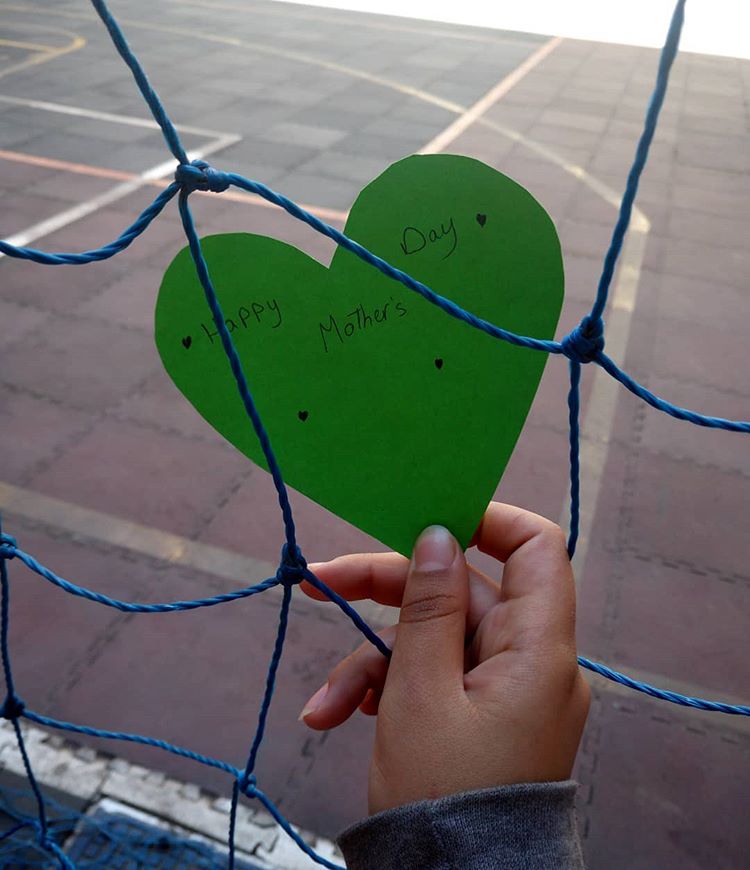 Happy Mother's Day